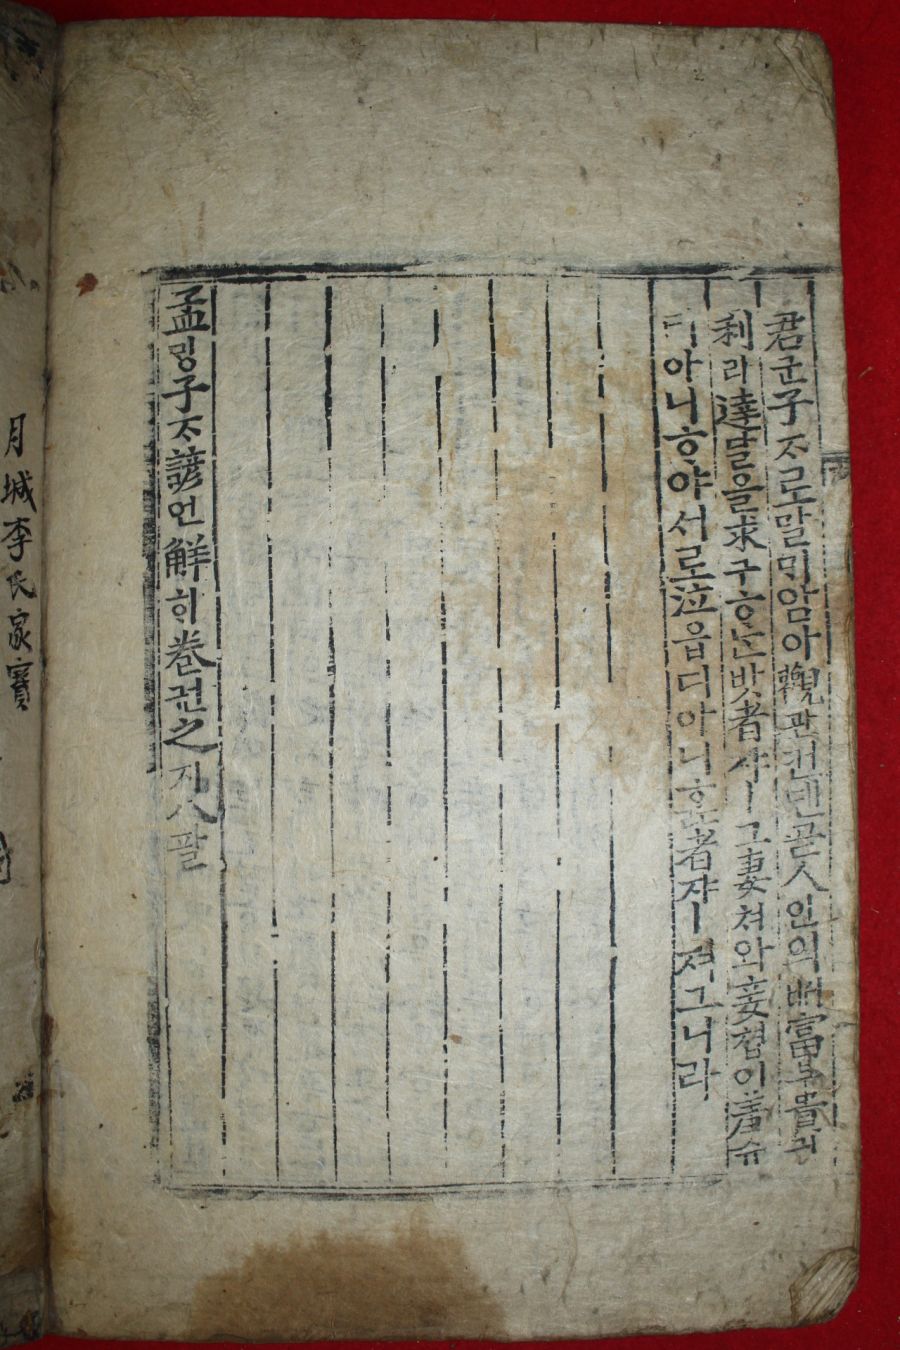 君군子ᄌᆞ로말ᄆᆡ암아觀관컨댄곧人인의ᄡᅥ富부貴귀
利리達달을求구ᄒᆞᄂᆞᆫ밧者쟈ㅣ그妻쳐와妾쳡이羞슈
디아니ᄒᆞ야서로泣읍디아니ᄒᆞᆯ者쟈ㅣ져그니라
孟ᄆᆡᆼ子ᄌᆞ諺언解ᄒᆡ卷권之지八팔
月城李氏家寶